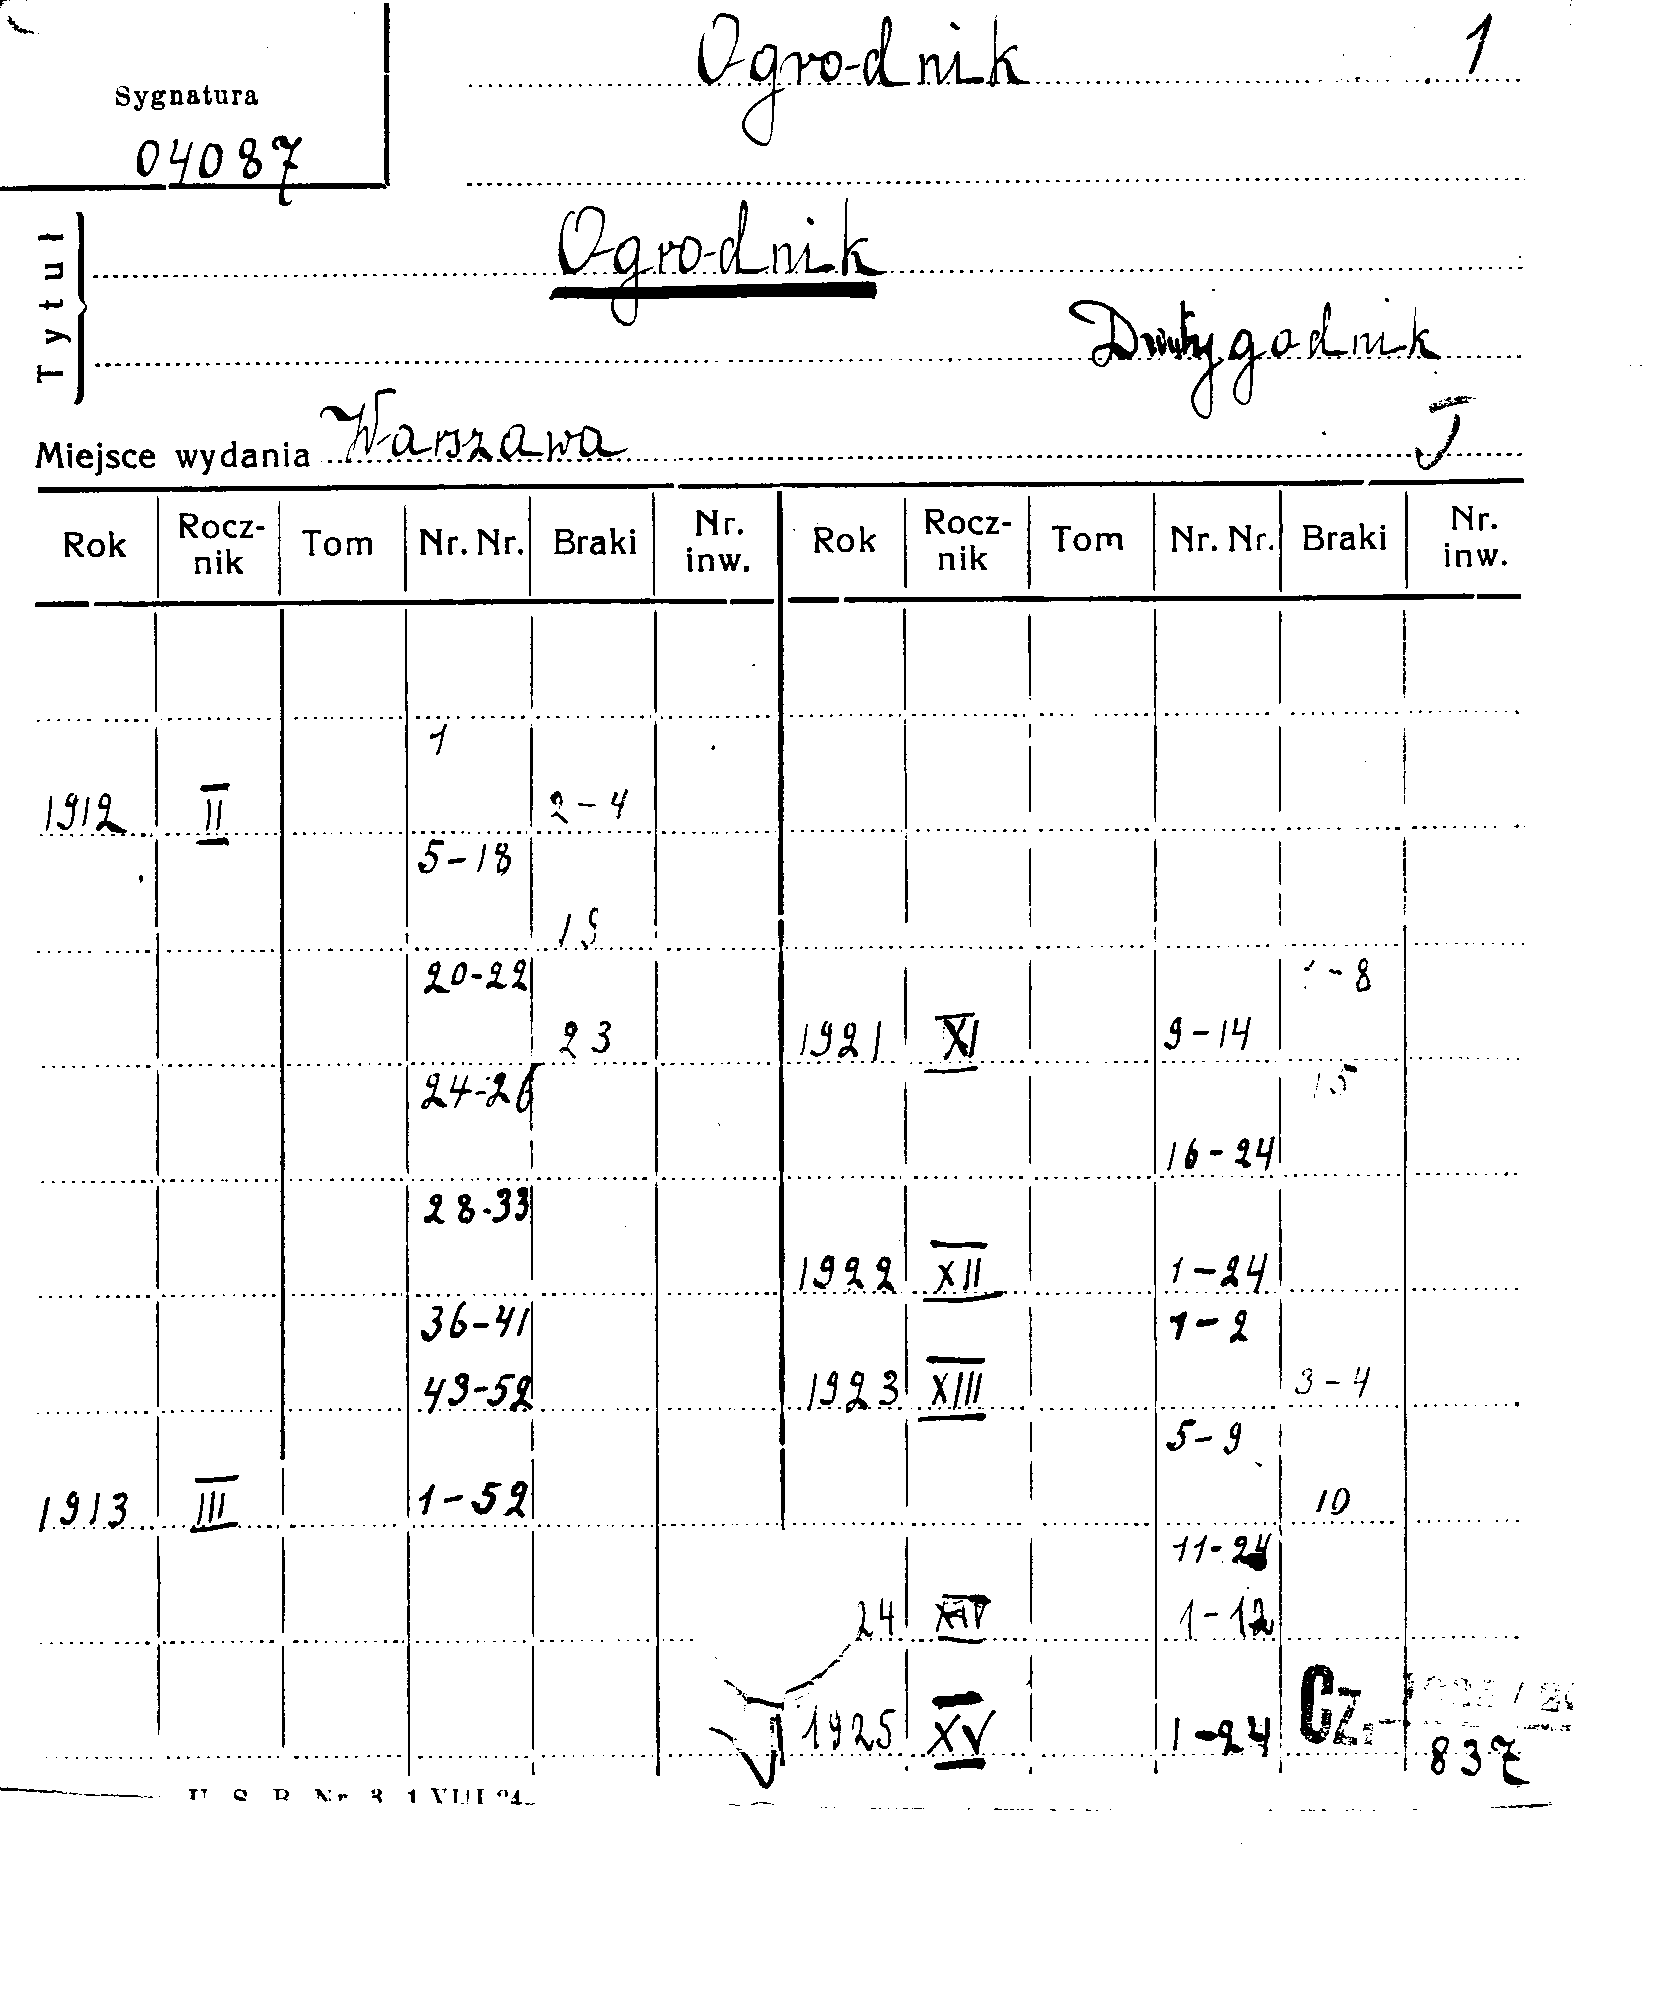 Ogrodnik 1
Sygnatura
04087
Tytuł
Ogrodnik
Dwutygodnik
Miejsce wydania Warszawa J
Rok Rocz-nik Tom Nr. Nr. Braki Nr. inw. Rok Rocz-nik Tom Nr. Nr. Braki Nr. inw.
1
1912 II 2-4
5-18
19
20-22
23
24-26
28-33
36-41
49-52
1913 III 1-52
1-8
1921 XI 9-14
15
16-24
1922 XII 1-24
1-2
1923 XIII 3-4
5-9
10
11-24
24 XIV 1-12
1925 XV 1-24
Cz.
837
U. S. B. Nr. 3